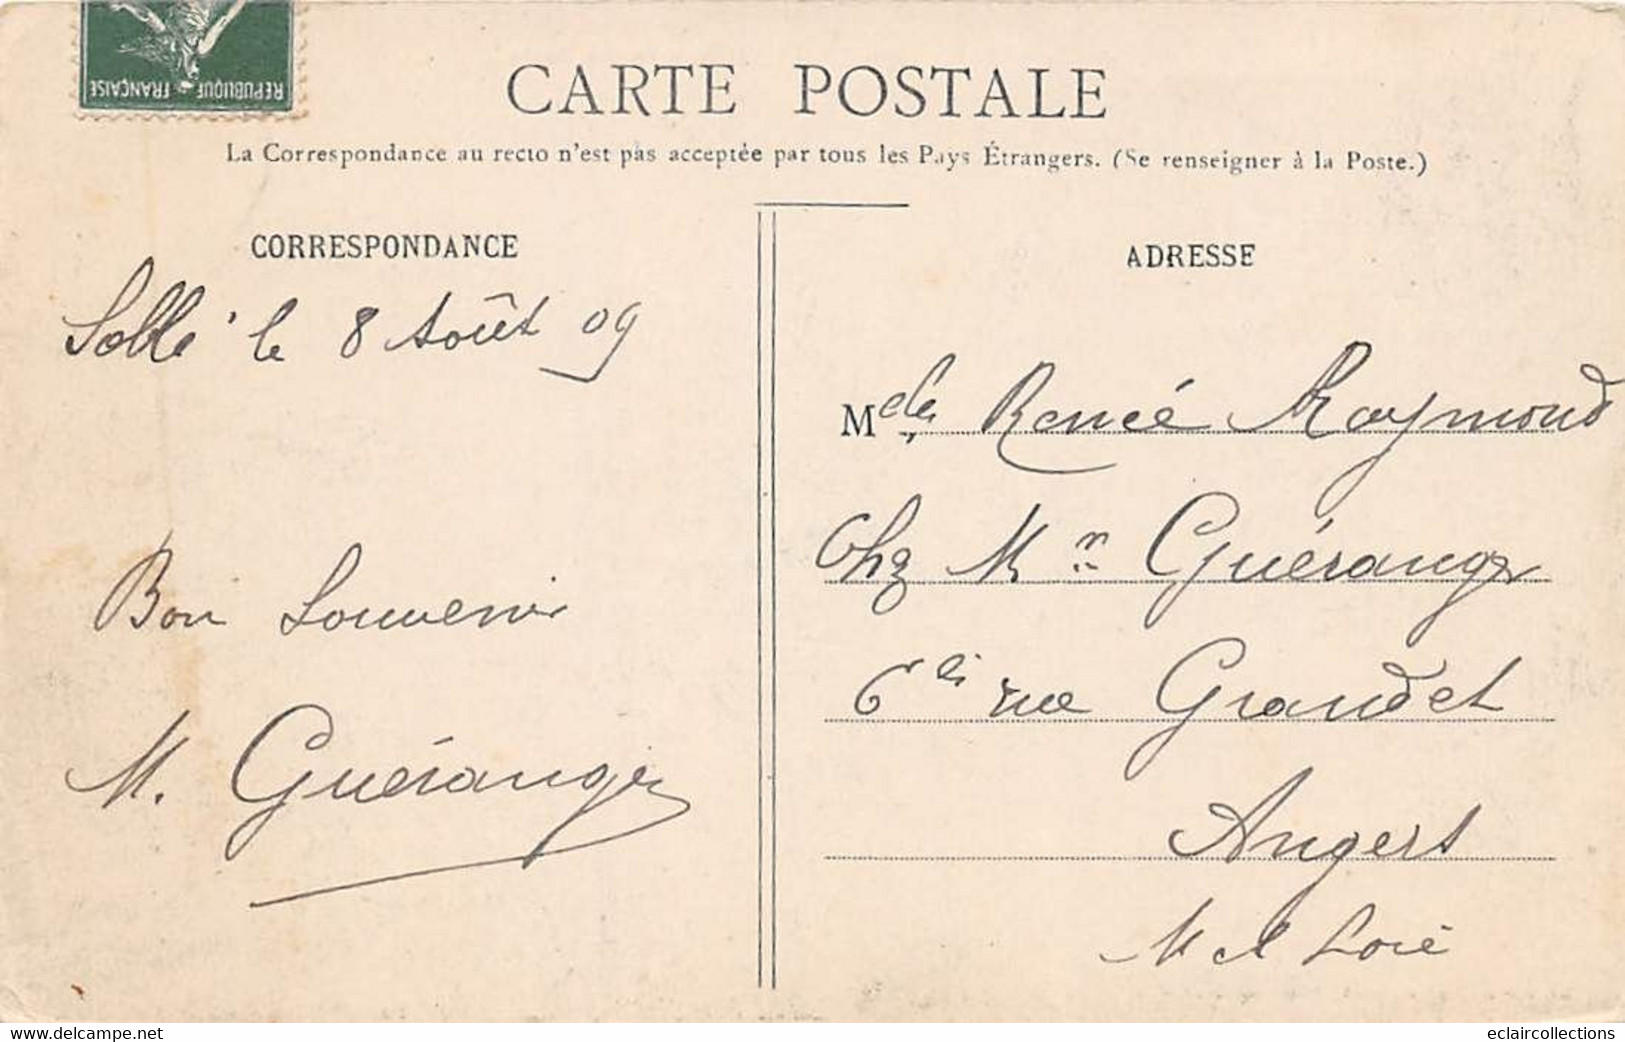 RÉPUBLIQUE FRANÇAISE
CARTE POSTALE
La Correspondance au recto n'est pas acceptée par tous les Pays Étrangers. (Se renseigner à la Poste.)
CORRESPONDANCE
le 8 Août 09
Bon Souvenir
M. Guéranger
ADRESSE
Melle Renée Raymond
Chez Mr Guéranger
6 rue Grandet
Angers
M et Loire
www.delcampe.net
eclaircollections